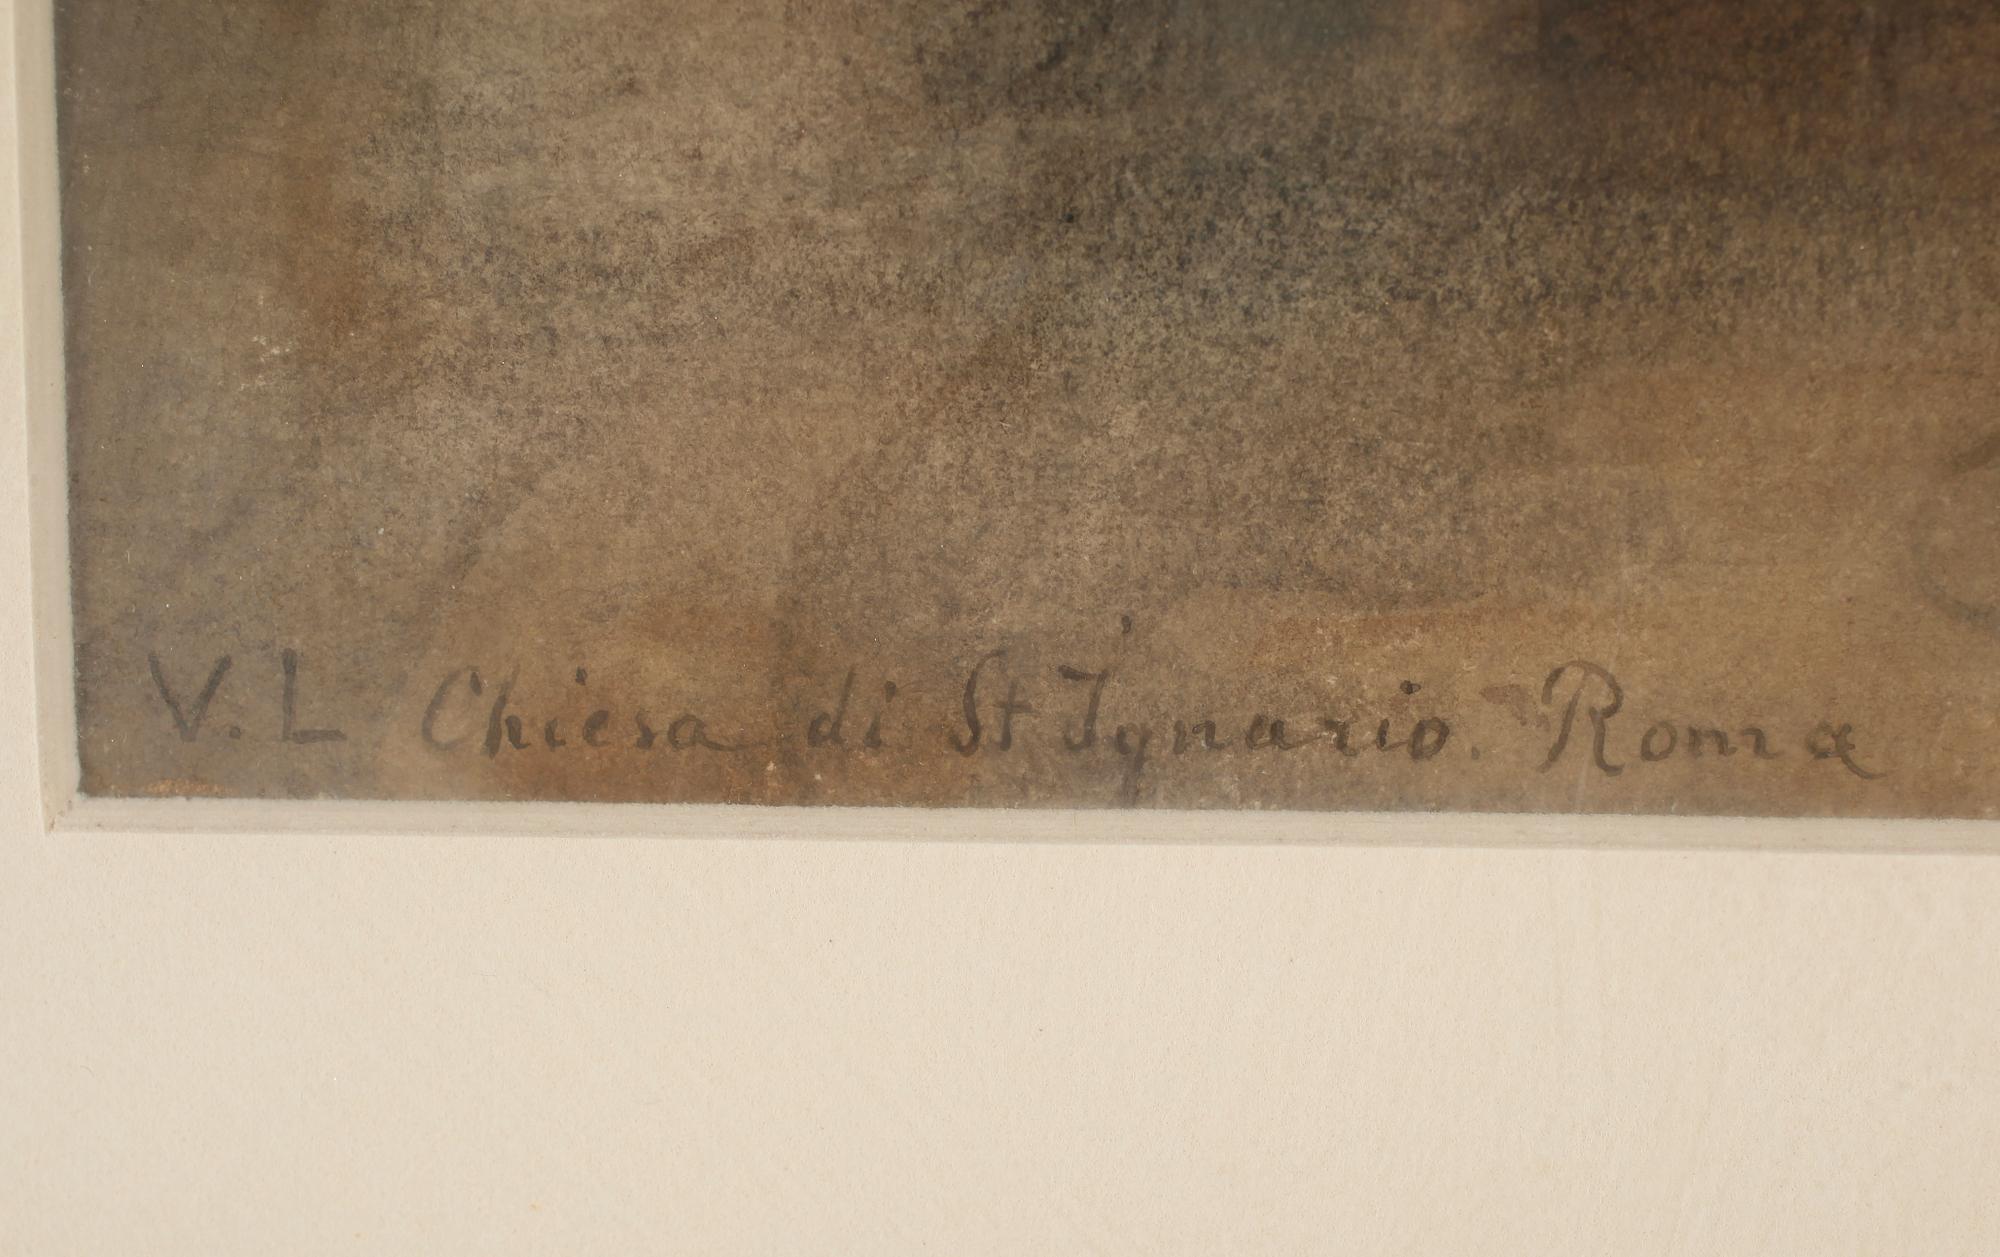 V. L Chiesa di St Ignazio. Roma